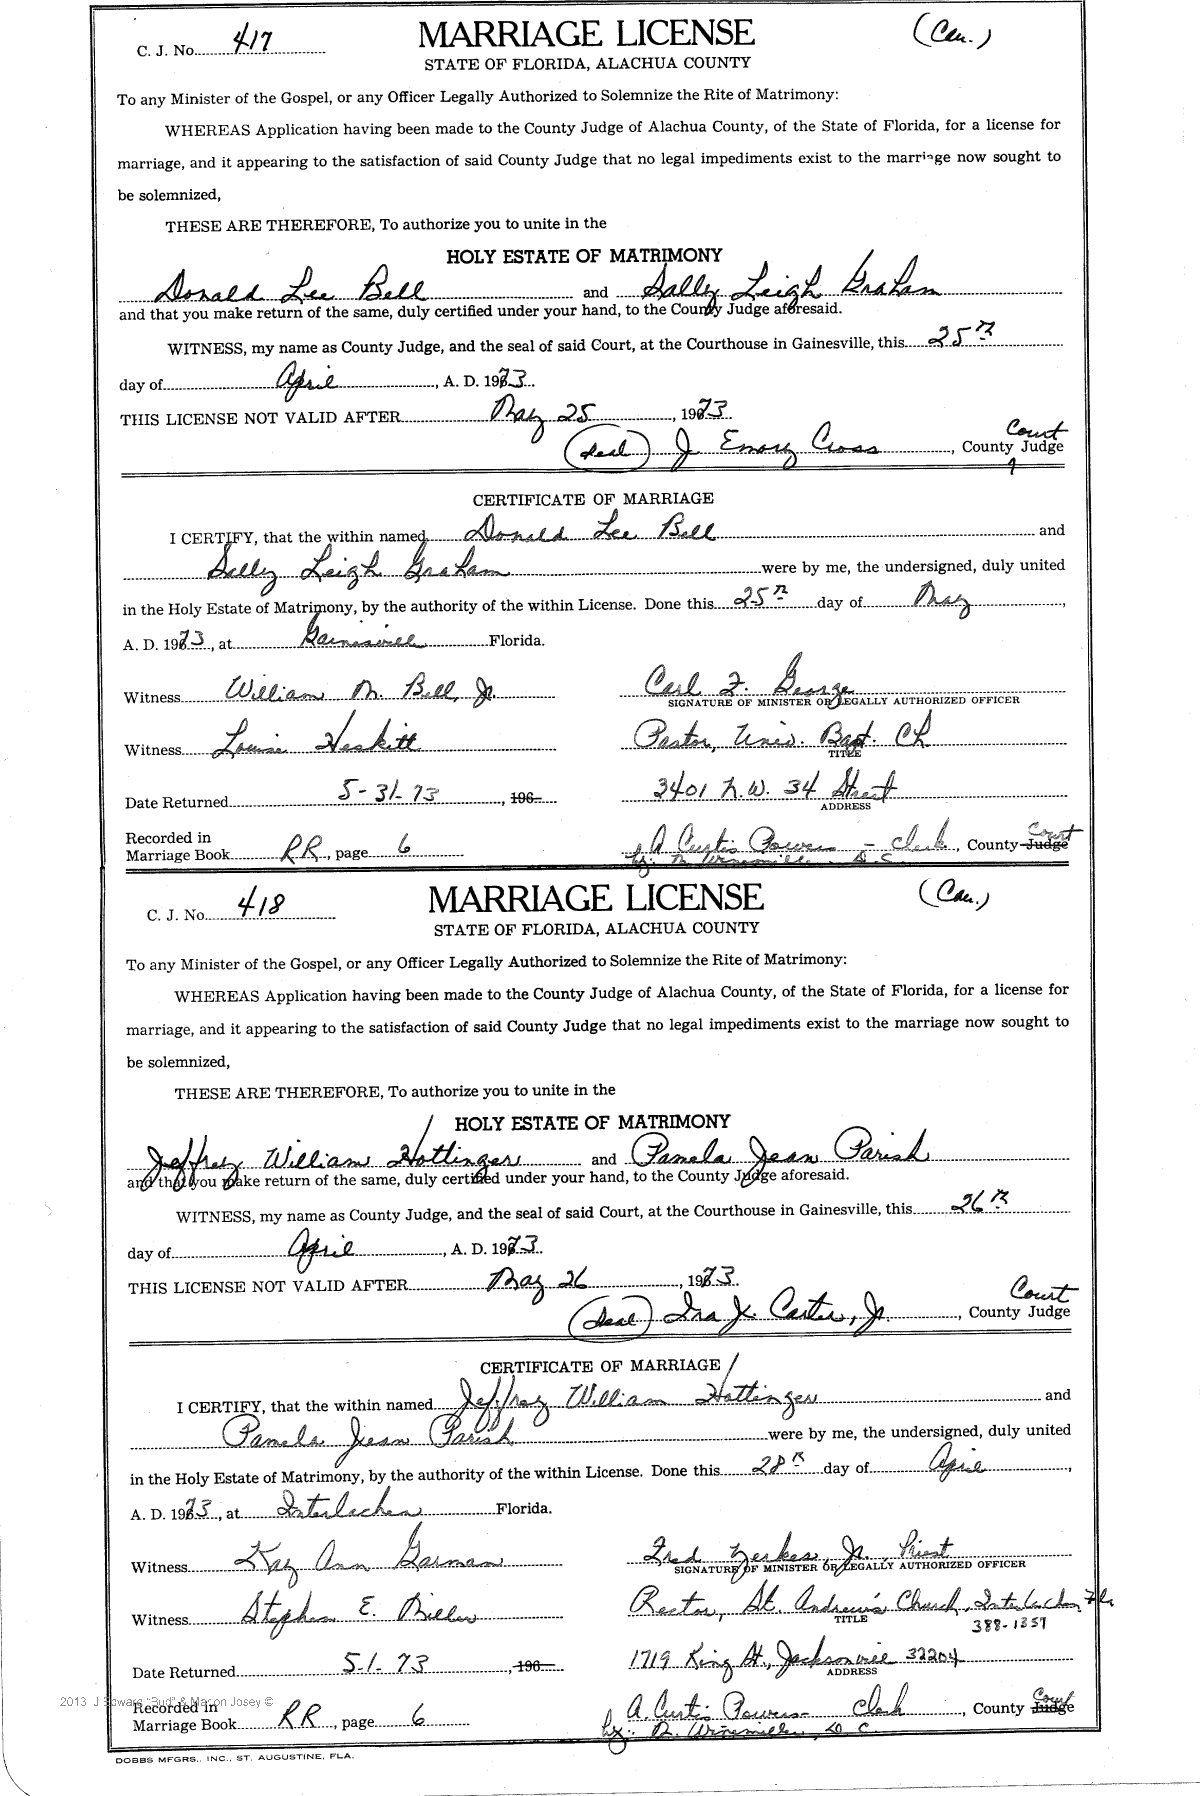 C. J. No. 417 MARRIAGE LICENSE (Cau.)
STATE OF FLORIDA, ALACHUA COUNTY
To any Minister of the Gospel, or any Officer Legally Authorized to Solemnize the Rite of Matrimony:
WHEREAS Application having been made to the County Judge of Alachua County, of the State of Florida, for a license for
marriage, and it appearing to the satisfaction of said County Judge that no legal impediments exist to the marriage now sought to
be solemnized,
THESE ARE THEREFORE, To authorize you to unite in the
HOLY ESTATE OF MATRIMONY
Donald Lee Bell and Sally Leigh Graham
and that you make return of the same, duly certified under your hand, to the County Judge aforesaid.
WITNESS, my name as County Judge, and the seal of said Court, at the Courthouse in Gainesville, this 25th
day of April, A. D. 1973.
THIS LICENSE NOT VALID AFTER May 25, 1973.
Court
(Seal) J. Emory Cross, County Judge
CERTIFICATE OF MARRIAGE
I CERTIFY, that the within named Donald Lee Bell and
Sally Leigh Graham were by me, the undersigned, duly united
in the Holy Estate of Matrimony, by the authority of the within License. Done this 25th day of May,
A. D. 1973, at Gainesville Florida.
Witness William M. Bell, Jr. Carl F. George
SIGNATURE OF MINISTER OR LEGALLY AUTHORIZED OFFICER
Witness Louise Heskitt Pastor, Univ. Bapt. Ch
TITLE
Date Returned 5-31-73, 196- 3401 N.W. 34 Street
ADDRESS
Recorded in Court
Marriage Book RR, page 6 A Curtis Powers - Clerk, County Judge
by: M. Winemiller D.C
C. J. No. 418 MARRIAGE LICENSE (Cau.)
STATE OF FLORIDA, ALACHUA COUNTY
To any Minister of the Gospel, or any Officer Legally Authorized to Solemnize the Rite of Matrimony:
WHEREAS Application having been made to the County Judge of Alachua County, of the State of Florida, for a license for
marriage, and it appearing to the satisfaction of said County Judge that no legal impediments exist to the marriage now sought to
be solemnized,
THESE ARE THEREFORE, To authorize you to unite in the
HOLY ESTATE OF MATRIMONY
Jeffrey William Hottinger and Pamela Jean Parish
and that you make return of the same, duly certified under your hand, to the County Judge aforesaid.
WITNESS, my name as County Judge, and the seal of said Court, at the Courthouse in Gainesville, this 26th
day of April, A. D. 1973.
THIS LICENSE NOT VALID AFTER May 26, 1973.
Court
(Seal) Ira J. Carter, Jr., County Judge
CERTIFICATE OF MARRIAGE
I CERTIFY, that the within named Jeffrey William Hottinger and
Pamela Jean Parish were by me, the undersigned, duly united
in the Holy Estate of Matrimony, by the authority of the within License. Done this 28th day of April,
A. D. 1973, at Interlachen Florida.
Witness Kay Ann Garman Fred Yerkes, Jr., Priest
SIGNATURE OF MINISTER OR LEGALLY AUTHORIZED OFFICER
Witness Stephen E. Miller Rector, St. Andrew's Church, Interlachen, Fla
TITLE 388-1357
Date Returned 5-1-73, 196- 1719 King St., Jacksonville 32204
ADDRESS
2013 J Edward "Bud" & Macon Josey ©
Recorded in Court
Marriage Book RR, page 6 A. Curtis Powers - Clerk, County Judge
by: M. Winemiller, D C
DOBBS MFGRS., INC., ST. AUGUSTINE, FLA.